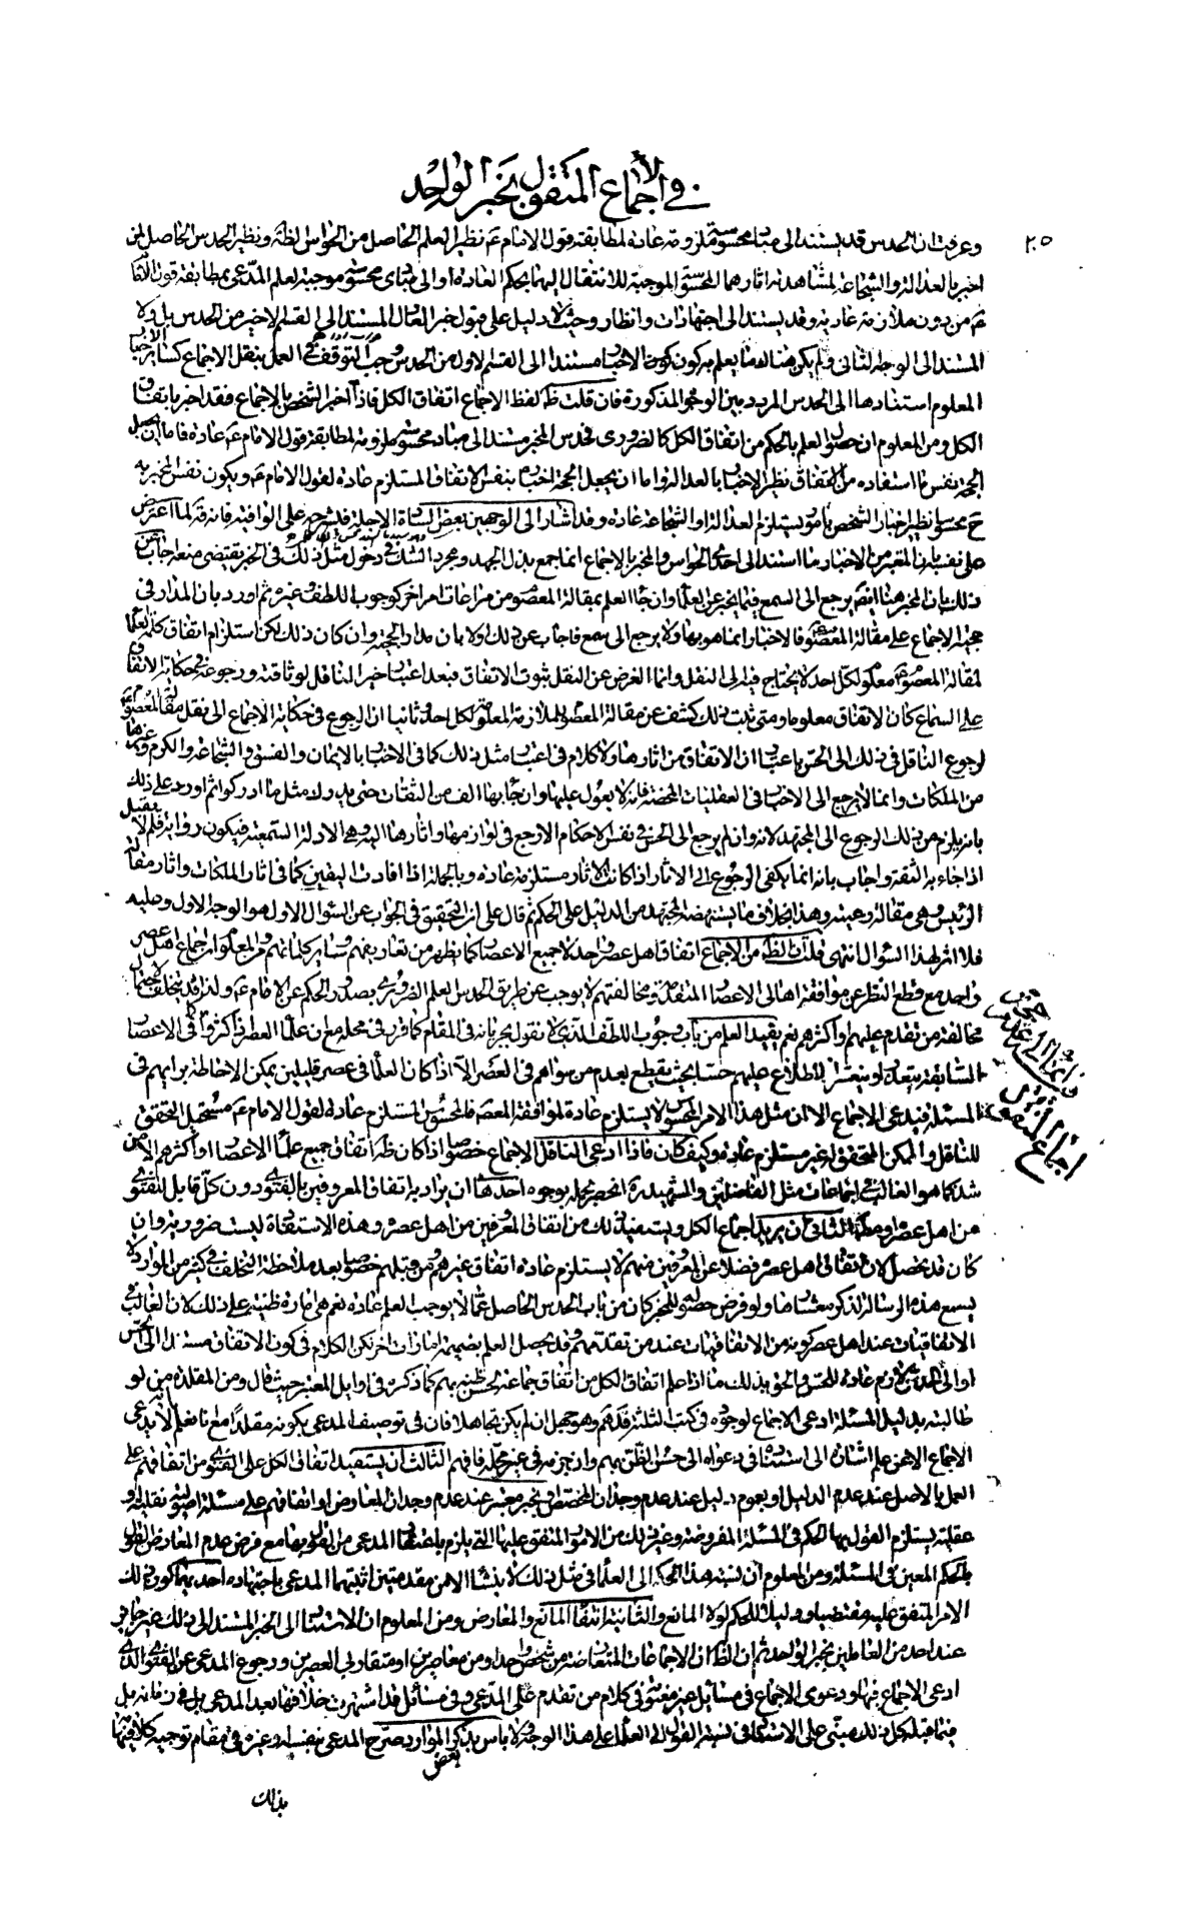 في الإجماع المنقول بخبر الواحد
٢٠٥
وعرفت ان الحدس قد يستند الى مباد محسوسة ملزومة عادة لمطابقة قول الامام ع نظير العلم الحاصل من الحواس الظاهرة ونظير الحدس الحاصل لمن
اخبر بالعدالة والشجاعة لمشاهدته اثارهما المحسوسة الموجبة للانتقال اليهما بحكم العادة او الى مبادي محسوسة موجبة لعلم المدعى بمطابقة قول الامام
ع من دون ملازمة عادية وقد يستند الى اجتهادات وانظار وحيث لا دليل على قبول خبر العادل المستند الى القسم الاخير من الحدس بل ولا
المستند الى الوجه الثانى ولم يكن هناك ما يعلم به كون الاخبار مستندا الى القسم الاول من الحدس وجب التوقف في العمل بنقل الاجماع كسائر الاخبار
المعلوم استنادها الى الحدس المردد بين الوجوه المذكورة فان قلت ظاهر لفظ الاجماع اتفاق الكل فاذا اخبر الشخص بالاجماع فقد اخبر باتفاق
الكل ومن المعلوم ان حصول العلم بالحكم من اتفاق الكل كالضرورى فحدس المخبر مستند الى مباد محسوسة ملزومة لمطابقة قول الامام ع عادة فاما ان يجعل
الحجة نفس ما استفاده من الاتفاق نظير الاخبار بالعدالة واما ان يجعل الحجة اخباره بنفس الاتفاق المستلزم عادة لقول الامام ع ويكون نفس المخبر به
ح محسوسا نظير اخبار الشخص بامور يستلزم العدالة والشجاعة عادة وقد اشار الى الوجهين بعض السادة الاجلة في شرحه على الوافية فانه قه لما اعترض
على نفسه بان المعتبر من الاخبار ما استند الى احدى الحواس والمخبر بالاجماع انما جمع بذل الجهد ومجرد الشك في دخول مثل ذلك في الخبر يقتضى منعه اجاب عن
ذلك بان المخبر هنا ايضا يرجع الى السمع فيما يخبر عن العلماء وان جاء العلم بمقالة المعصوم من مراعات امر اخر كوجوب اللطف وغيره ثم اورد بان المدار في
حجية الاجماع على مقالة المعصوم ع فالاخبار انما هو بها ولا يرجع الى سمع فاجاب عن ذلك اولا بان مدار الحجية وان كان ذلك لكن استلزام اتفاق كلمة العلماء
لمقالة المعصوم ع معلوم لكل احد لا يحتاج فيه الى النقل وانما الغرض من النقل ثبوت الاتفاق فبعد اعتبار خبر الناقل لوثاقته ورجوعه في حكاية الاتفاق
على السماع كان الاتفاق معلوما ومتى ثبت ذلك كشف عن مقالة المعصوم للملازمة المعلومة لكل احد وثانيا ان الرجوع في حكاية الاجماع الى نقل مقالة المعصوم ع
لرجوع الناقل في ذلك الى الحس باعتبار ان الاتفاق من اثارها ولا كلام في اعتبار مثل ذلك كما في الاخبار بالايمان والفسق والشجاعة والكرم وغيرها
من الملكات وانما لا يرجع الى الاخبار في العقليات المحضة فانه لا يعول عليها وان جاء بها الف من الثقات حتى يدرك مثل ما ادركوا ثم اورد على ذلك
بانه يلزم من ذلك الرجوع الى المجتهد لانه وان لم يرجع الى الحس في نفس الاحكام الا رجع في لوازمها واثارها اليه وهى الادلة السمعية فيكون رواية فلم لا يقبل
اذا جاء به الثقة واجاب بانه انما يكفى الرجوع الى الاثار اذا كانت الاثار مستلزمة عادة وبالجملة اذا افادت اليقين كما في اثار الملكات واثار مقالة
الرئيس وهى مقالة رعيته وهذا بخلاف ما يستنهضه المجتهد من الدليل على الحكم ثم قال على ان التحقيق في الجواب عن السؤال الاول هو الوجه الاول وعليه
فلا اثر لهذا السؤال انتهى قلت ان الظاهر من الاجماع اتفاق اهل عصر واحد لا جميع الاعصار كما يظهر من تعاريفهم وسائر كلماتهم ومن المعلوم ان اجماع اهل عصر
واحد مع قطع النظر عن موافقة اهالى الاعصار المتقدمة ومخالفتهم لا يوجب عن طريق الحدس العلم الضرورى بصدور الحكم عن الامام ع ولذا قد يتخلف لاحتمال
مخالفة من تقدم عليهم او اكثرهم نعم يفيد العلم من باب وجوب اللطف الذى لا نقول بجريانه في المقام كما قرر في محله مع ان علماء العصر اذا كثروا كما في الاعصار
السابقة يتعذر او يتعسر الاطلاع عليهم حسا بحيث يقطع بعدم من سواهم في العصر الا اذا كان العلماء في عصر قليلين يمكن الاحاطة برايهم في
المسئلة فيدعى الاجماع الا ان مثل هذا الامر المحسوس لا يستلزم عادة لموافقة المعصوم فالمحسوس المستلزم عادة لقول الامام ع مستحيل التحقق
للناقل والممكن المتحقق له غير مستلزم عادة وكيف كان فاذا ادعى الناقل الاجماع خصوصا اذا كان ظاهره اتفاق جميع علماء الاعصار او اكثرهم الا من
شذ كما هو الغالب في اجماعات مثل الفاضلين والشهيدين انحصر محمله بوجوه احدها ان يراد به اتفاق المعروفين بالفتوى دون كل قابل للفتوى
من اهل عصره او مطلقا الثانى ان يريد اجماع الكل ويستفيد ذلك من اتفاق المعروفين من اهل عصره وهذه الاستفادة ليست ضرورية وان
كان قد يحصل لان اتفاق اهل عصره فضلا عن المعروفين منهم لا يستلزم عادة اتفاق غيرهم ومن قبلهم خصوصا بعد ملاحظة التخلف في كثير من الموارد لا
يسع هذه الرسالة لذكر معشارها ولو فرض حصوله للمخبر كان من باب الحدس الحاصل عما لا يوجب العلم عادة نعم هى امارة ظنية على ذلك لان الغالب في
الاتفاقيات عند اهل عصر كونه من الاتفاقيات عند من تقدمهم وقد يحصل العلم بضميمة امارات اخر لكن الكلام في كون الاتفاق مستندا الى الحس
او الى الحدس لازم عادة للحس والحق بذلك ما اذا علم اتفاق الكل من اتفاق جماعة لحسن ظنه بهم كما ذكره في اوايل المعتبر حيث قال ومن المقلدة من لو
طالبته بدليل المسئلة ادعى الاجماع لوجوده في كتب الثلثة قدهم وهو جهل ان لم يكن تجاهلا فان في توصيف المدعى بكونه مقلدا مع انا نعلم لا يدعى
الاجماع الا عن علم اشارة الى استناده في دعواه الى حسن الظن بهم وان جزمه في غير محله فافهم الثالث ان يستفيد اتفاق الكل على الفتوى من اتفاقهم على
العمل بالاصل عند عدم الدليل او بعموم دليل عند عدم وجدان المخصص او بخبر معتبر عند عدم وجدان المعارض او اتفاقهم على مسئلة اصولية نقلية او
عقلية يستلزم القول بها الحكم في المسئلة المفروضة وغير ذلك من الامور المتفق عليها التى يلزم باعتقاد المدعى من القول بها مع فرض عدم المعارض القول
بالحكم المعين في المسئلة ومن المعلوم ان نسبة هذا الحكم الى العلماء في مثل ذلك لا ينشأ الا من مقدمتين اثبتهما المدعى باجتهاده احديهما كون ذلك
الامر المتفق عليه مقتضيا ودليلا للحكم لولا المانع والثانية انتفاء المانع والمعارض ومن المعلوم ان الاستناد الى الخبر المستند الى ذلك غير جايز
عند احد من العاملين بخبر الواحد ثم ان الظاهر ان الاجماعات المتعارضة من شخص واحد ومن معاصرين او متقاربى العصرين ورجوع المدعى عن الفتوى الذى
ادعى الاجماع فيها ودعوى الاجماع في مسايل غير معنونة في كلام من تقدم على المدعى وفي مسائل قد اشتهرت خلافها بعد المدعى بل في زمانه بل
فيما قبله كل ذلك مبنى على الاستناد في نسبة القول الى العلماء على هذا الوجه ولا باس بذكر الموارد صرح المدعى بنفسه او غيره في مقام توجيه كلامه فيها
بعض
بذلك